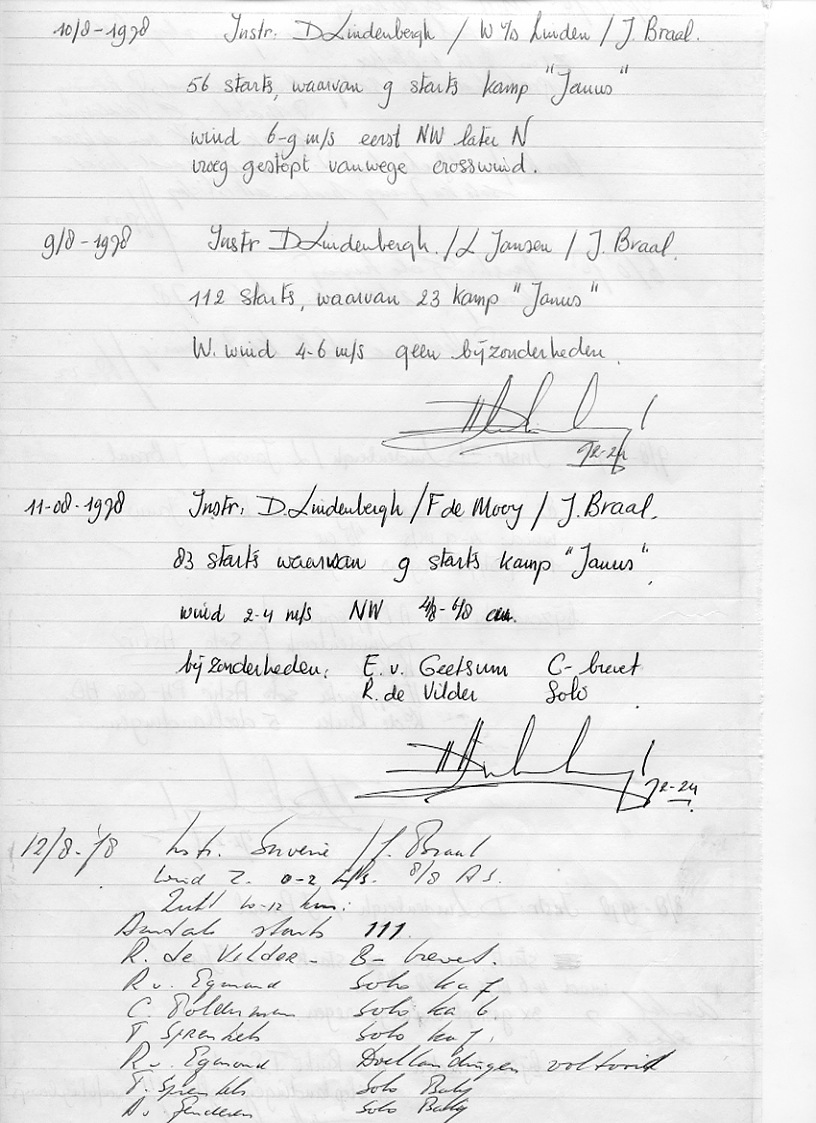 10/8-1978 Instr. D Lindenbergh / W v/d Linden / J. Braal.
56 starts, waarvan 9 starts kamp "Janus"
wind 6-9 m/s eerst NW later N
vroeg gestopt vanwege crosswind.
9/8-1978 Instr D Lindenbergh. / L Jansen / J. Braal.
112 starts, waarvan 23 kamp "Janus"
W. wind 4-6 m/s geen bijzonderheden.
72-24
11-08-1978 Instr. D. Lindenbergh / F de Mooy / J. Braal.
83 starts waarvan 9 starts kamp "Janus".
wind 2-4 m/s NW 4/8-6/8 cu.
bijzonderheden: E. v. Geetsum C-brevet
R. de Vilder Solo
72-24
12/8-'78 Instr. / J. Braal
wind Z. 0-2 m/s. 8/8 A.S.
Zicht 10-12 km:
Aantal starts 111
R. de Vilder - B-brevet.
R v. Egmond Solo ka 7
C. Polderman Solo ka 6
T Sprenkels Solo ka 7.
R v. Egmond Doellandingen voltooid
T. Sprenkels Solo Baby
A v. Genderen Solo Baby